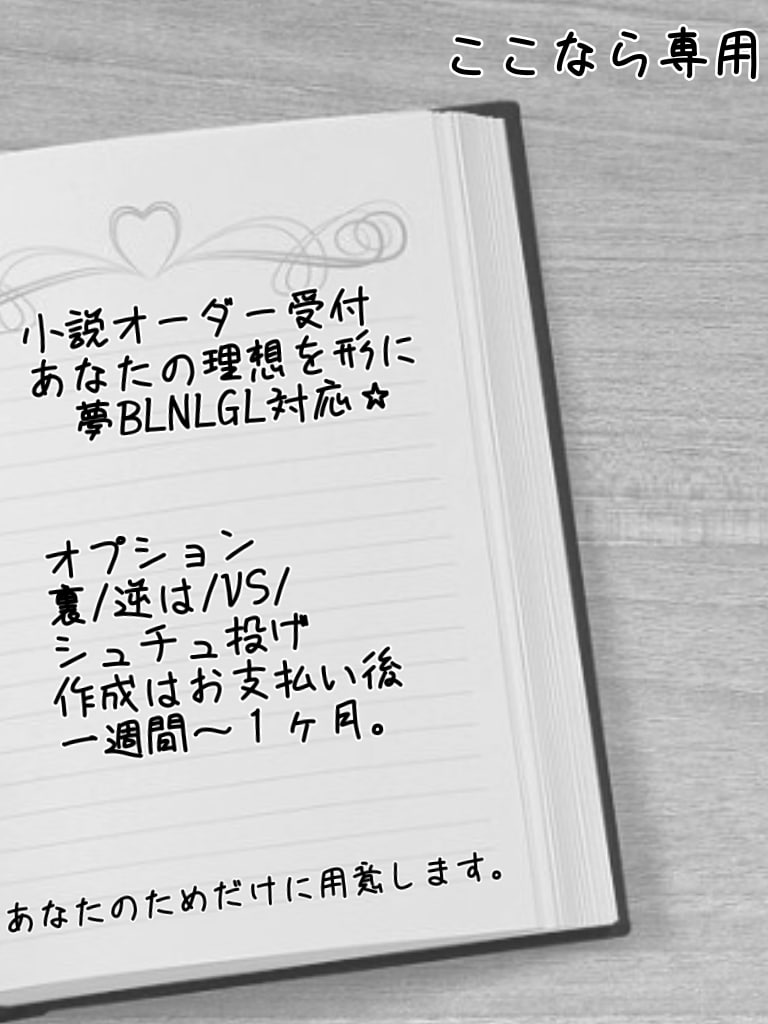 ここなら専用
小説オーダー受付
あなたの理想を形に
夢BLNLGL対応☆
オプション
裏/逆は/VS/
シュチュ投げ
作成はお支払い後
一週間～1ヶ月。
あなたのためだけに用意します。